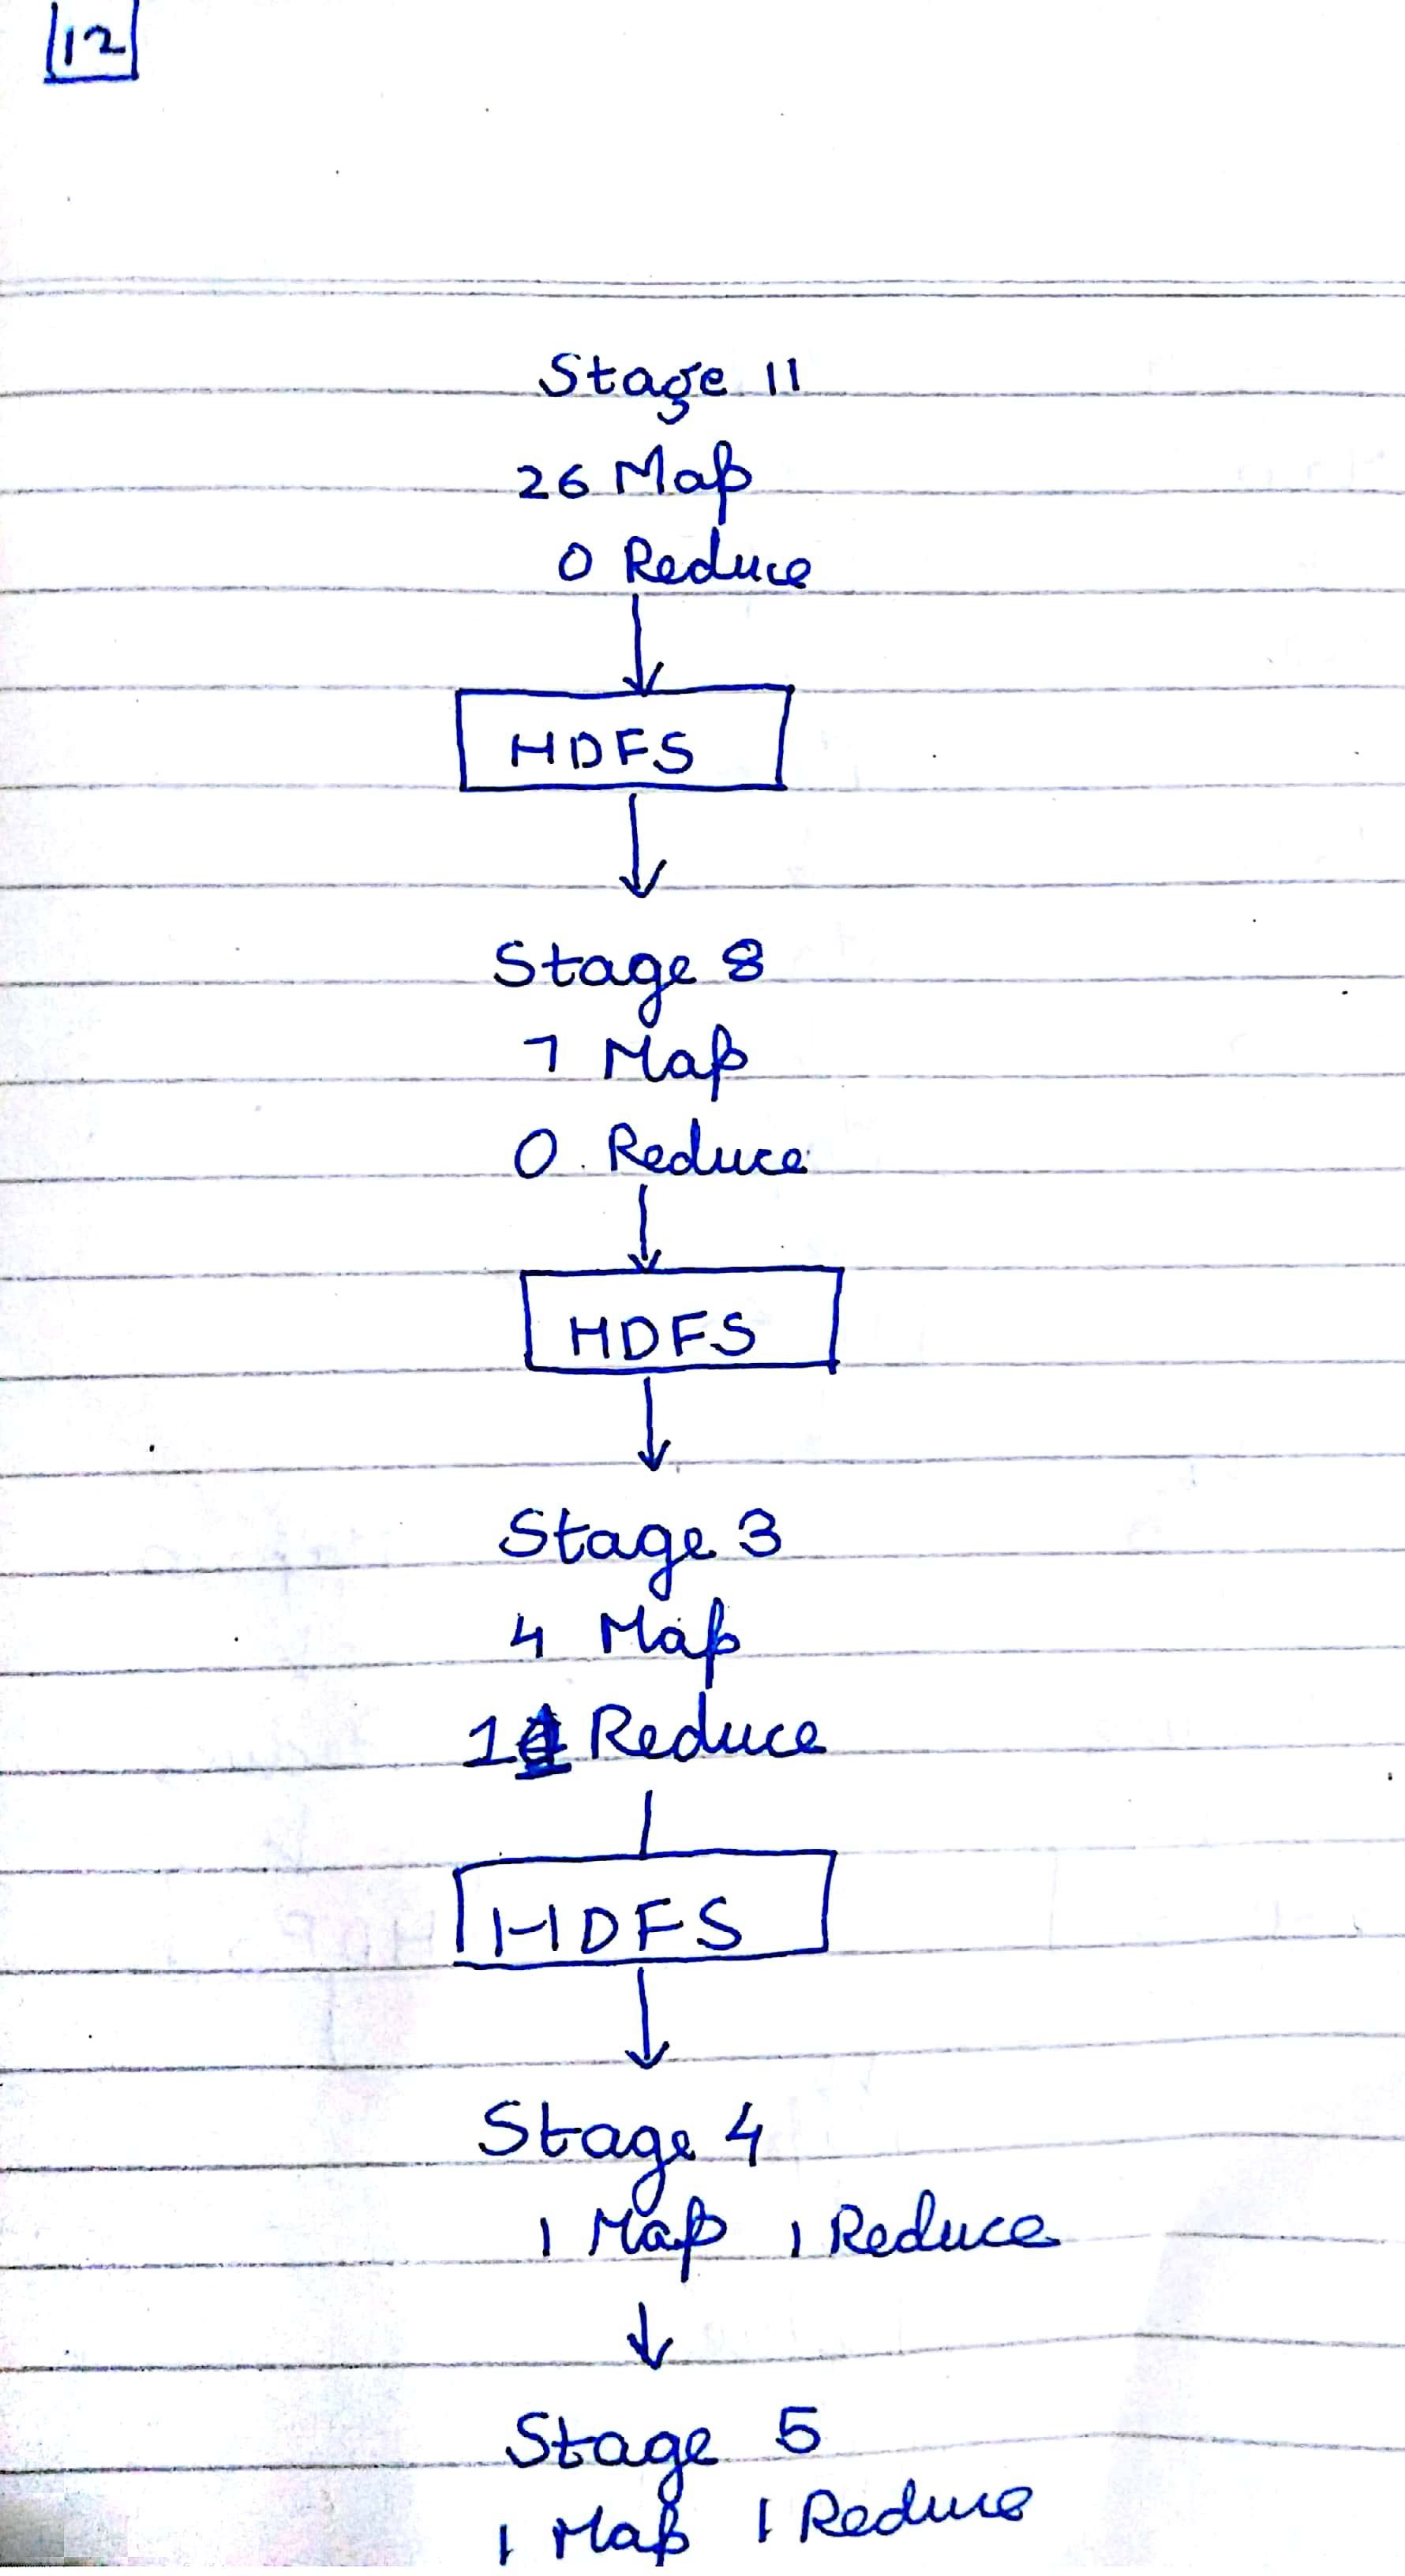 12
Stage 11
26 Map
0 Reduce
HDFS
Stage 8
7 Map
0 Reduce
HDFS
Stage 3
4 Map
Reduce
HDFS
Stage 4
1 Map 1 Reduce
Stage 5
1 Map 1 Reduce